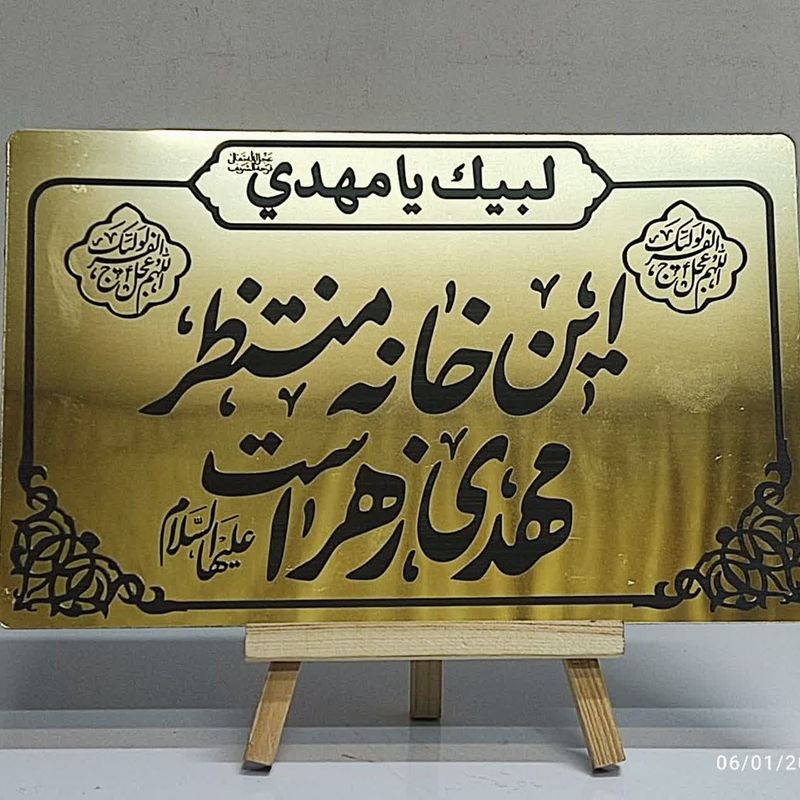 لبيك يا مهدي
عجل الله تعالی
فرجه الشریف
اللهم عجل لولیک الفرج
اللهم عجل لولیک الفرج
این خانه منتظر
مهدی زهراست
علیها السلام
06/01/20